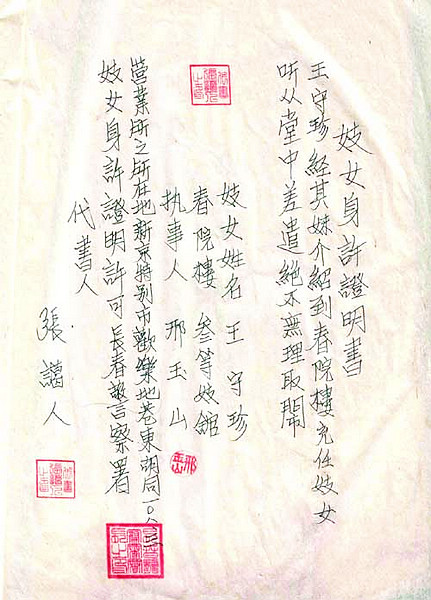 妓女身許證明書
王守珍經其妹介紹到春院樓充任妓女
听从堂中差遣絕不無理取鬧
妓女姓名 王守珍
春院樓 叁等妓館
执事人 邢玉山
營業所之所在地新京特别市歡樂地巷東明同一〇八
妓女身許證明許可長春警察署
代書人
張 人